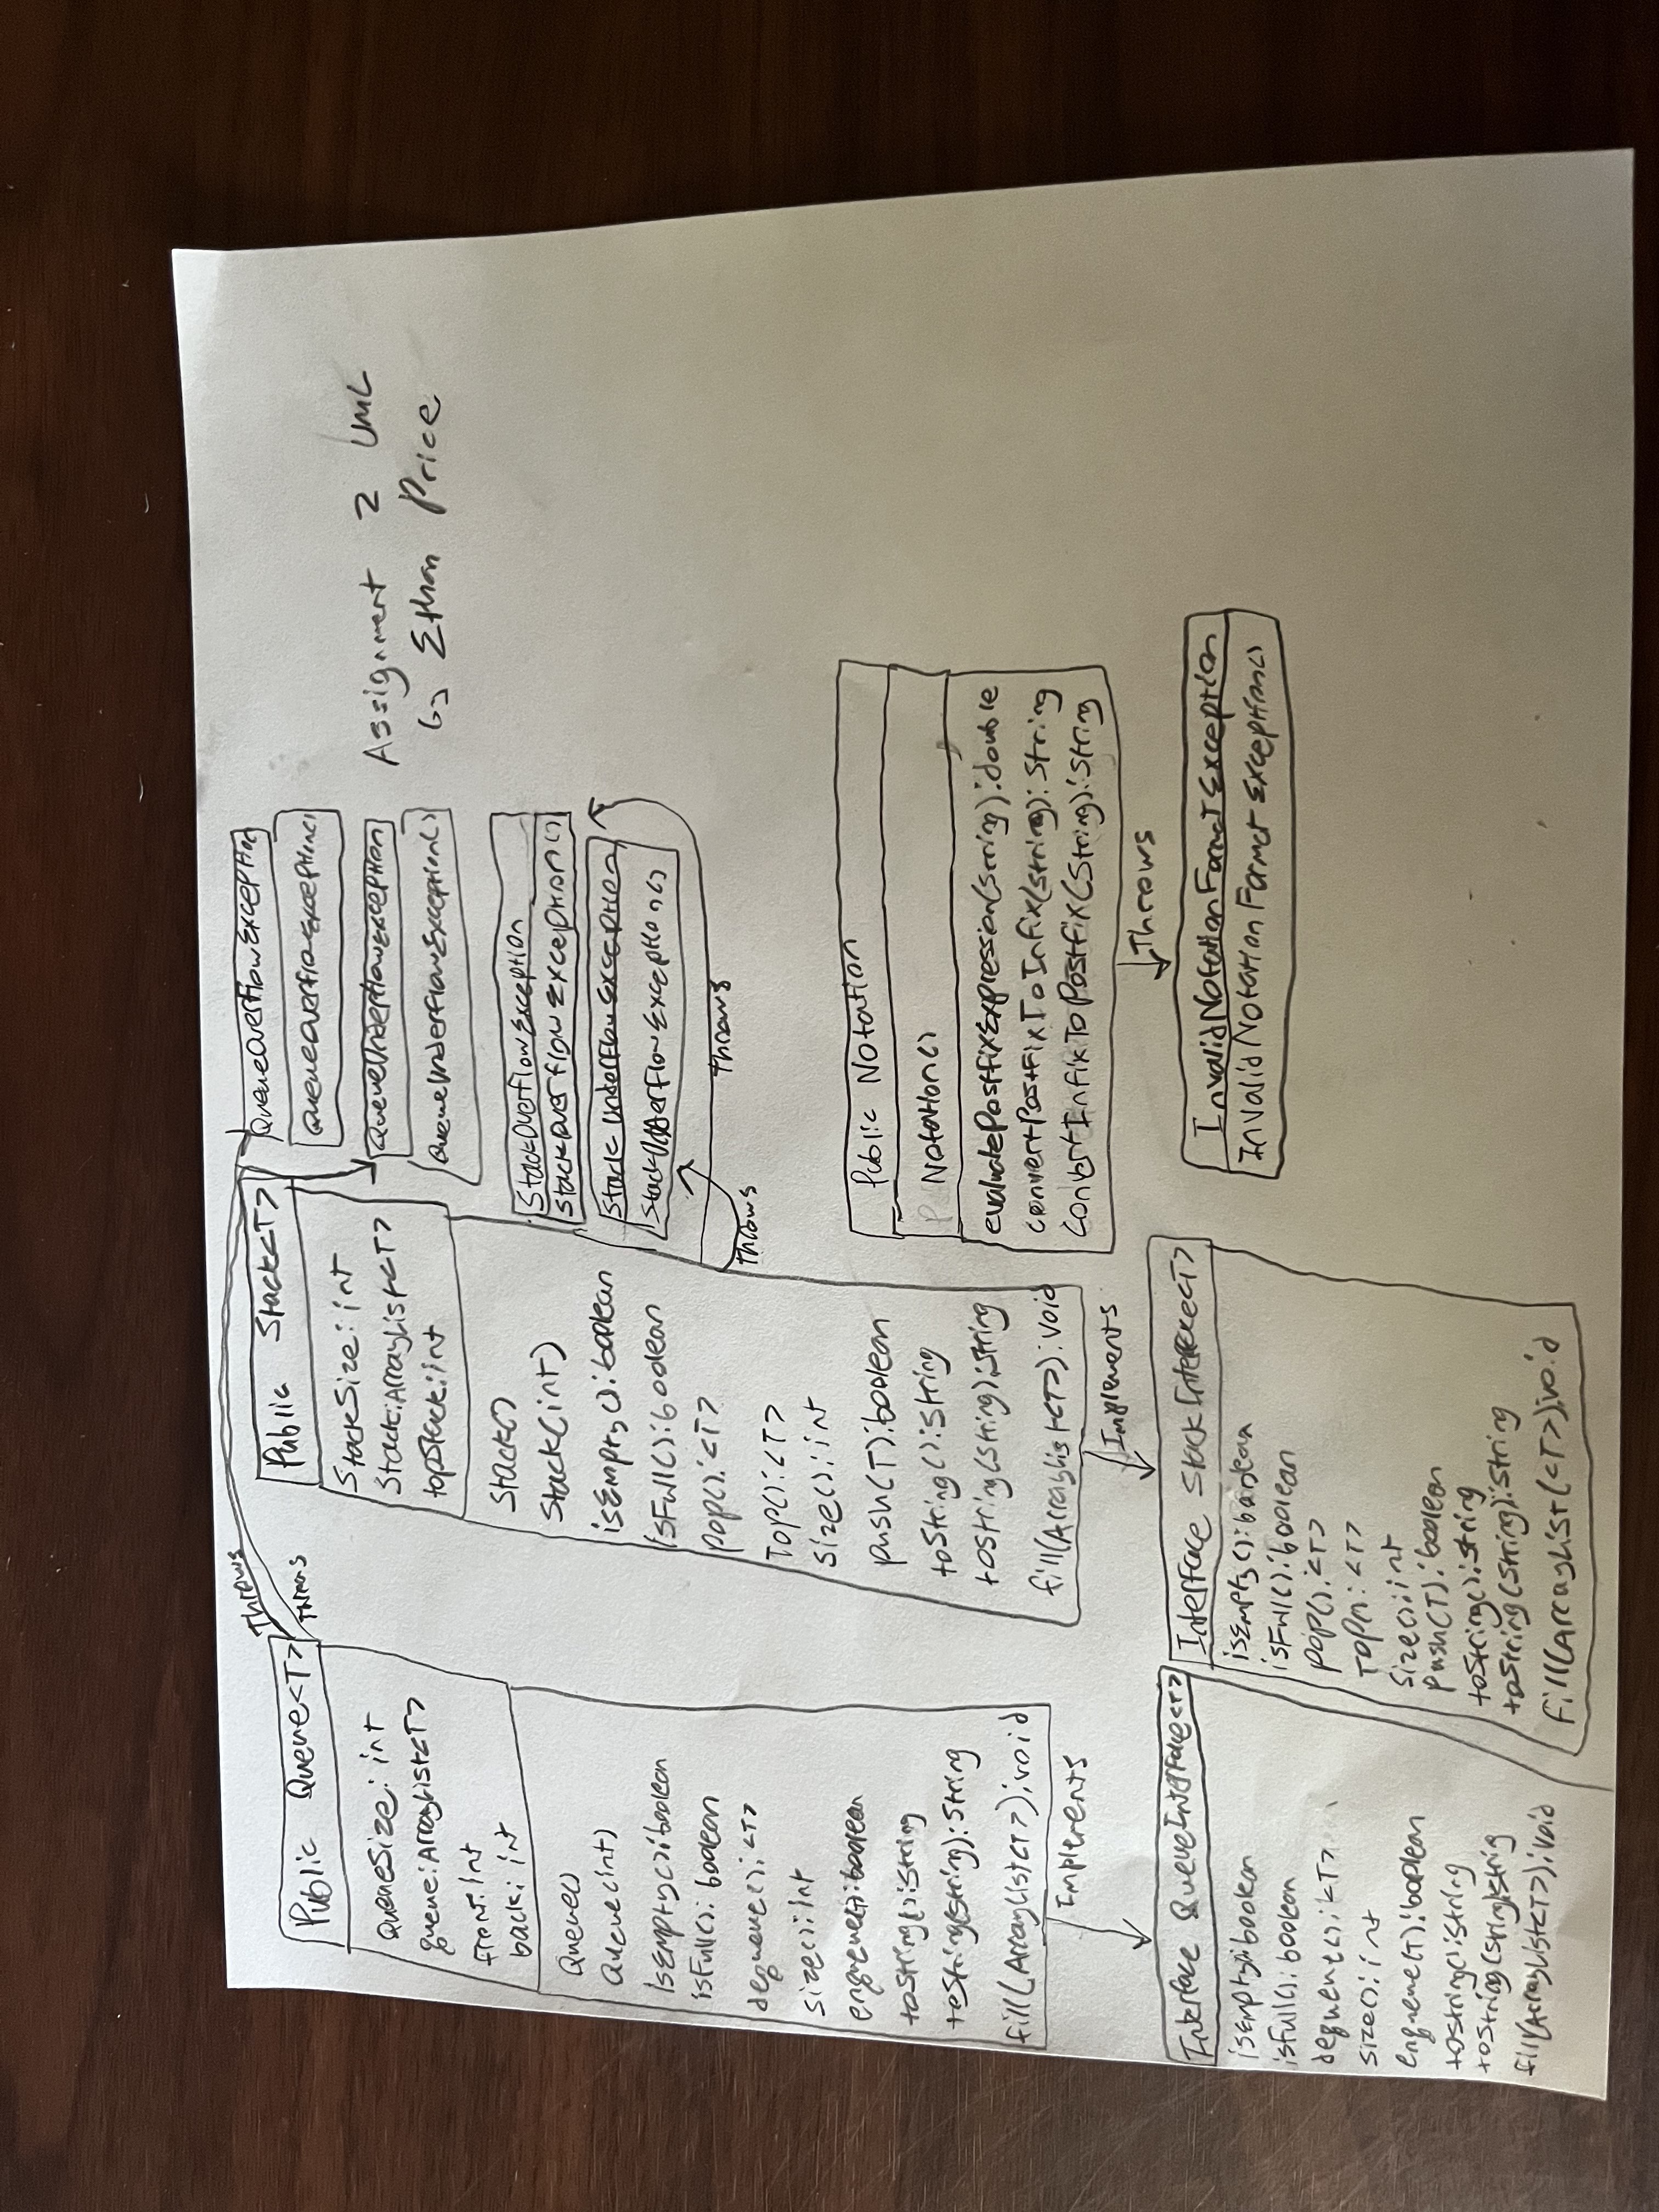 Throws
Throws
Public Queue<T>
QueueSize: int
queue:ArrayList<T>
front:int
back: int
Queue()
Queue(int)
isEmpty():boolean
isFull(): boolean
dequeue():<T>
size():int
enqueue(T):boolean
toString():String
toString(String):String
fill(ArrayList<T>):void
Implements
Interface QueueInterface<T>
isEmpty():boolean
isFull(): boolean
dequeue():<T>
size():int
enqueue(T):boolean
toString():String
toString(String):String
fill(ArrayList<T>):void
Public Stack<T>
StackSize: int
Stack:ArrayList<T>
topStack:int
Stack()
Stack(int)
isEmpty():boolean
isFull():boolean
pop():<T>
Top():<T>
size():int
push(T):boolean
toString():String
toString(String):String
fill(ArrayList<T>):void
Implements
Interface StackInterface<T>
isEmpty():boolean
isFull():boolean
pop():<T>
Top():<T>
size():int
push(T):boolean
toString():String
toString(String):String
fill(ArrayList(<T>):void
QueueOverflowException
QueueOverflowException()
QueueUnderflowException
QueueUnderflowException()
StackOverflowException
StackOverflowException()
StackUnderflowException
StackUnderflowException()
Throws
Throws
Assignment 2 UML
by Ethan Price
Public Notation
Notation()
evaluatePostfixExpression(String):double
convertPostfixToInfix(String):String
convertInfixToPostfix(String):String
Throws
InvalidNotationFormatException
InvalidNotationFormatException()